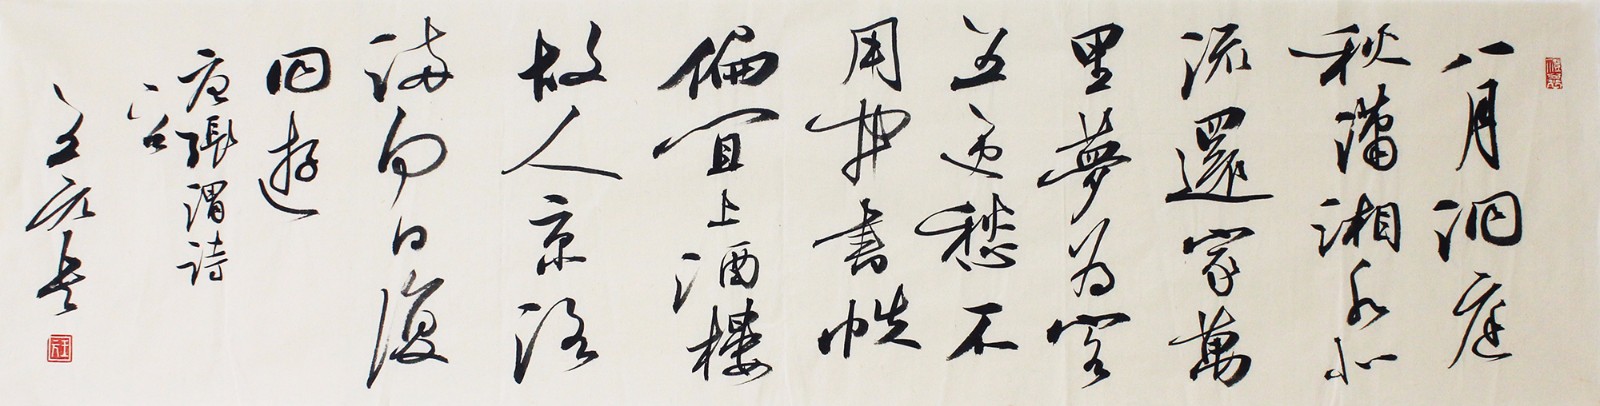 八月洞庭
秋瀟湘水北
流還家萬
里夢为客
五更愁不
用开書帙
偏宜上酒樓
故人京洛
滿何日復
同遊
唐張渭詩